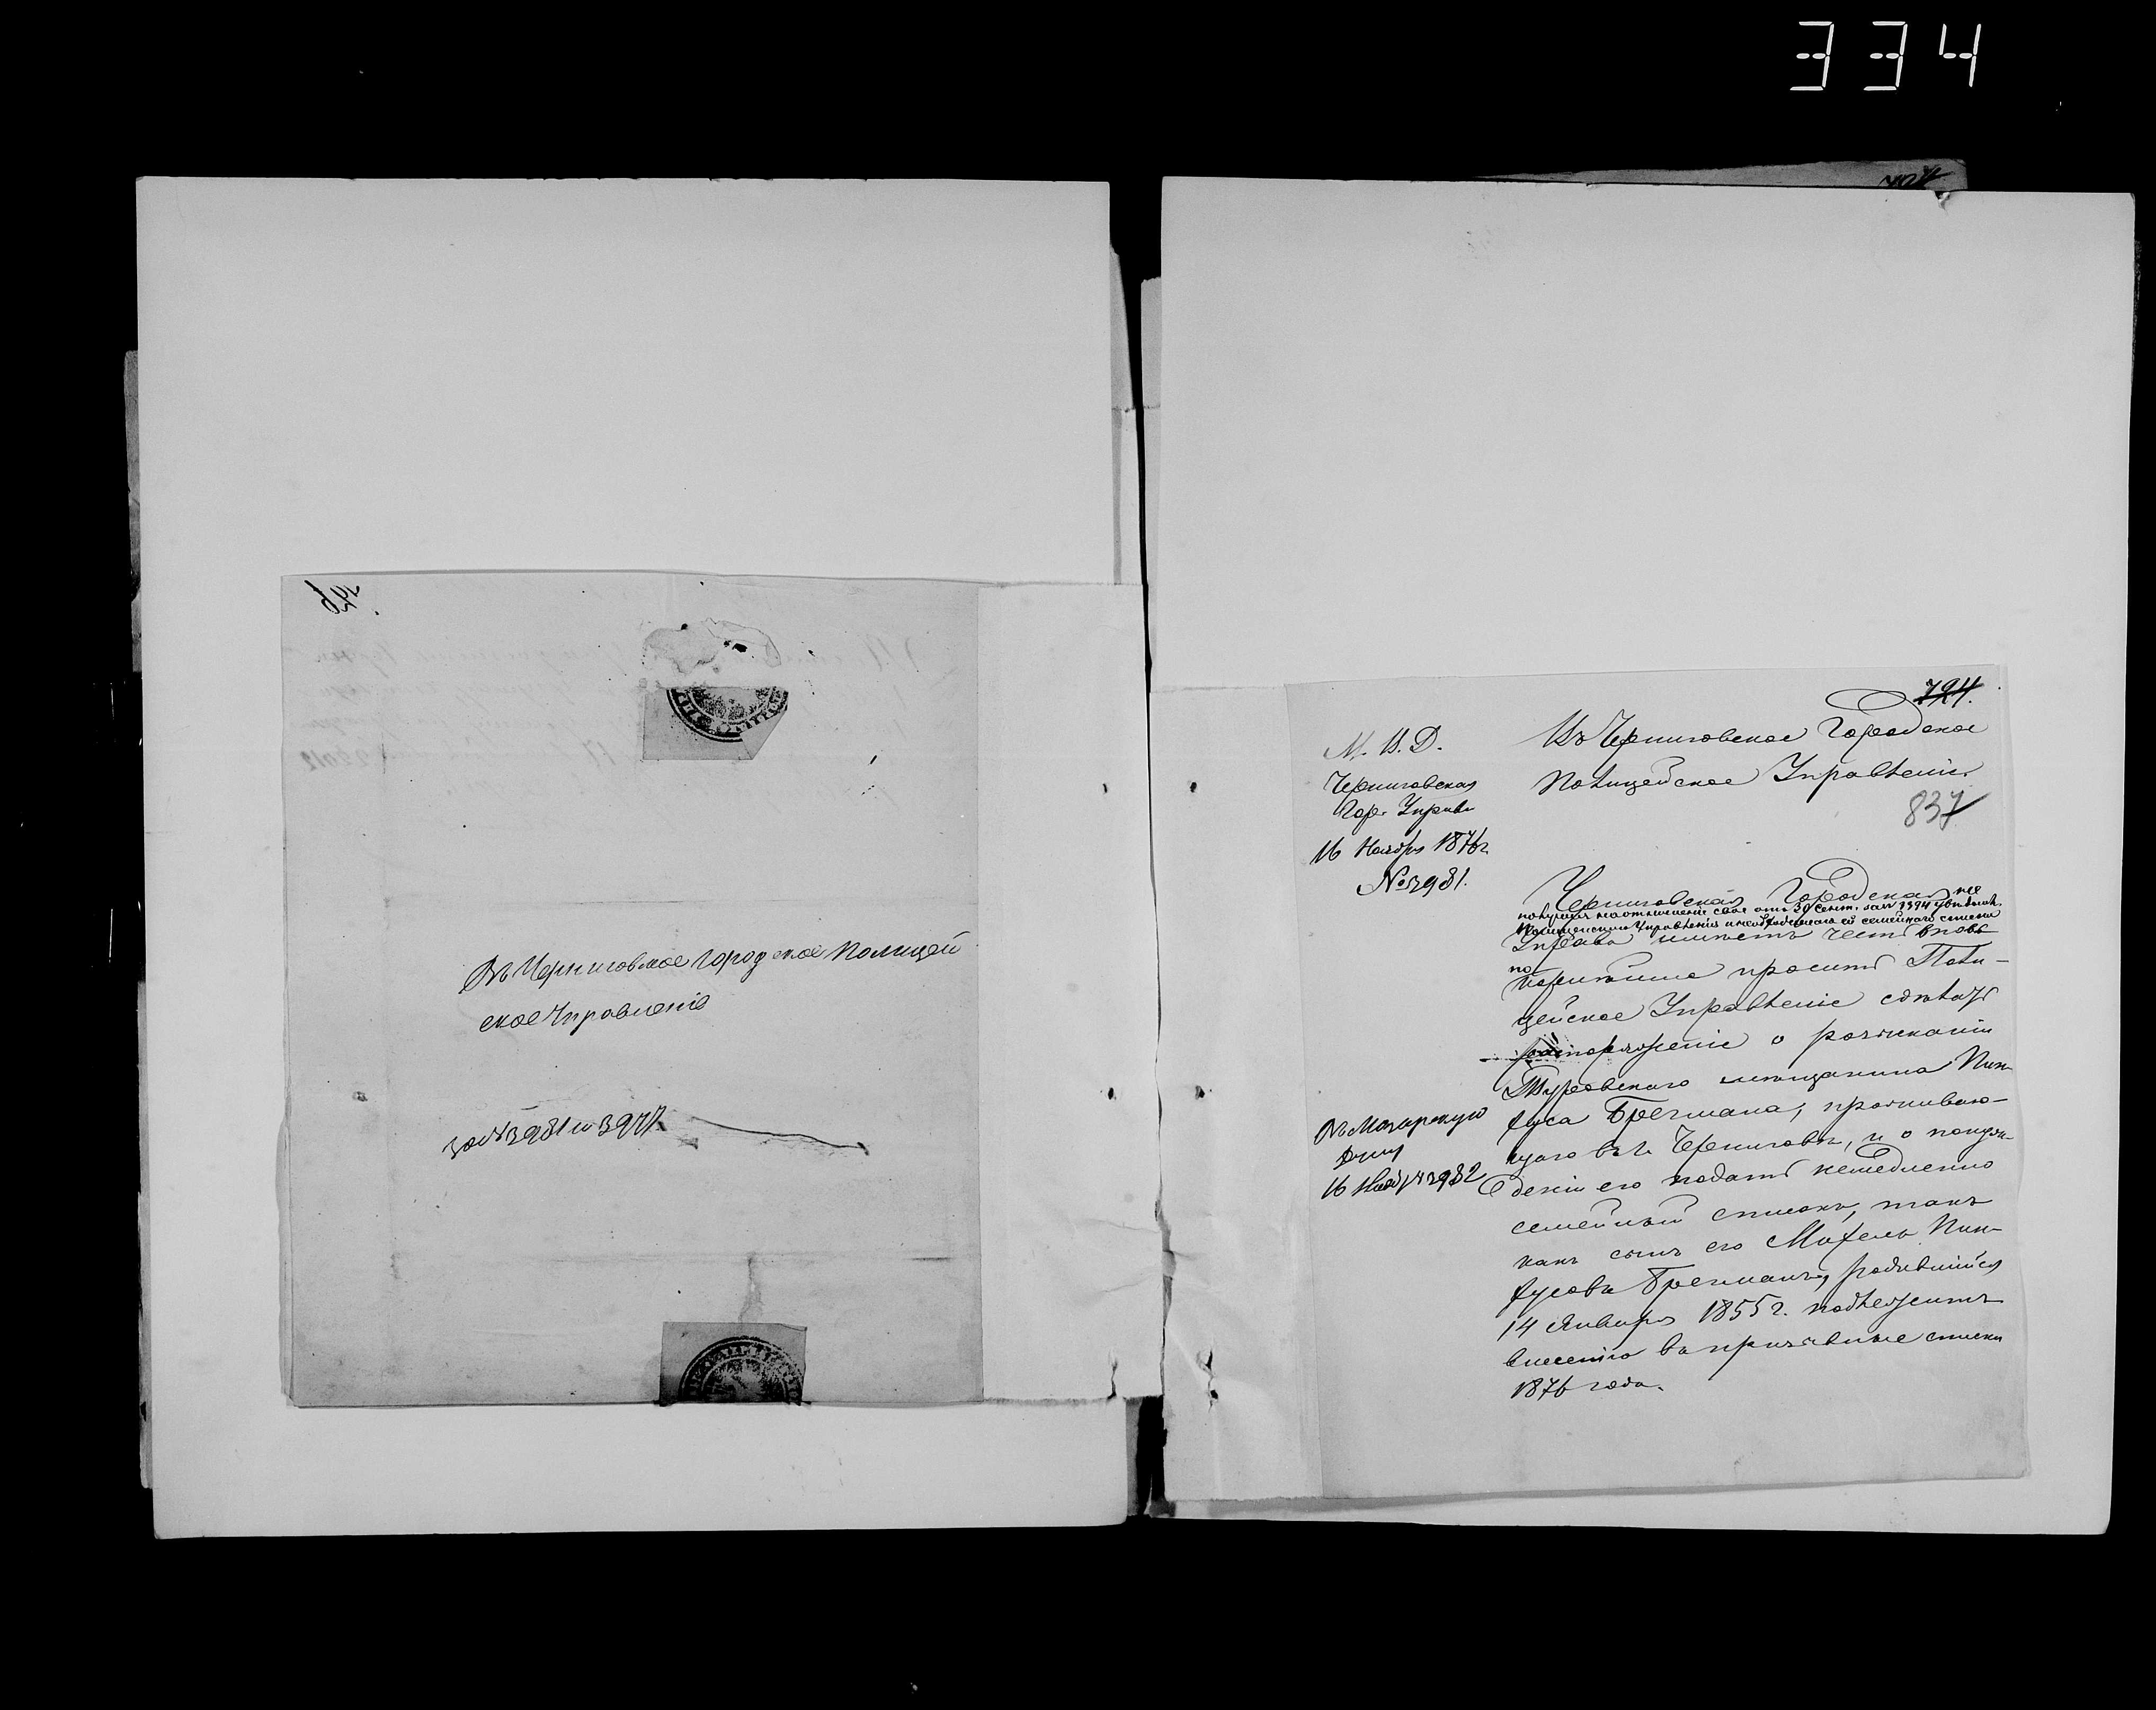 334
Въ Черниговское городское Полицей
ское Управленіе
за №№ 3981 и 3977
724.
М. В. Д.
Черниговская
Гор. Управа
16 Ноября 1876 г.
№ 3981.
Въ Черниговское Городское
Полицейское Управленіе.
837
Черниговская Городская не
получая на отношеніе свое отъ 30 Сент. за № 3394 увѣдомл.
Полицейскаго Управленія и необходимаго ей семейнаго списка
Управа имѣетъ честь вновь
по
корнѣйше просить Поли-
цейское Управленіе сдѣлать
распоряженіе о розысканіи
Туровскаго мѣщанина Пин-
хуса Брегмана, проживаю-
щаго въ г. Черниговѣ, и о понуж-
деніи его подать немедленно
семейный списокъ, такъ
какъ сынъ его Мохель Пин-
хусовъ Брегманъ, родившійся
14 Января 1855 г. подлежитъ
внесенію въ призывные списки
1876 года.
Въ Мозырскую
Думу
16 Нояб. № 3982